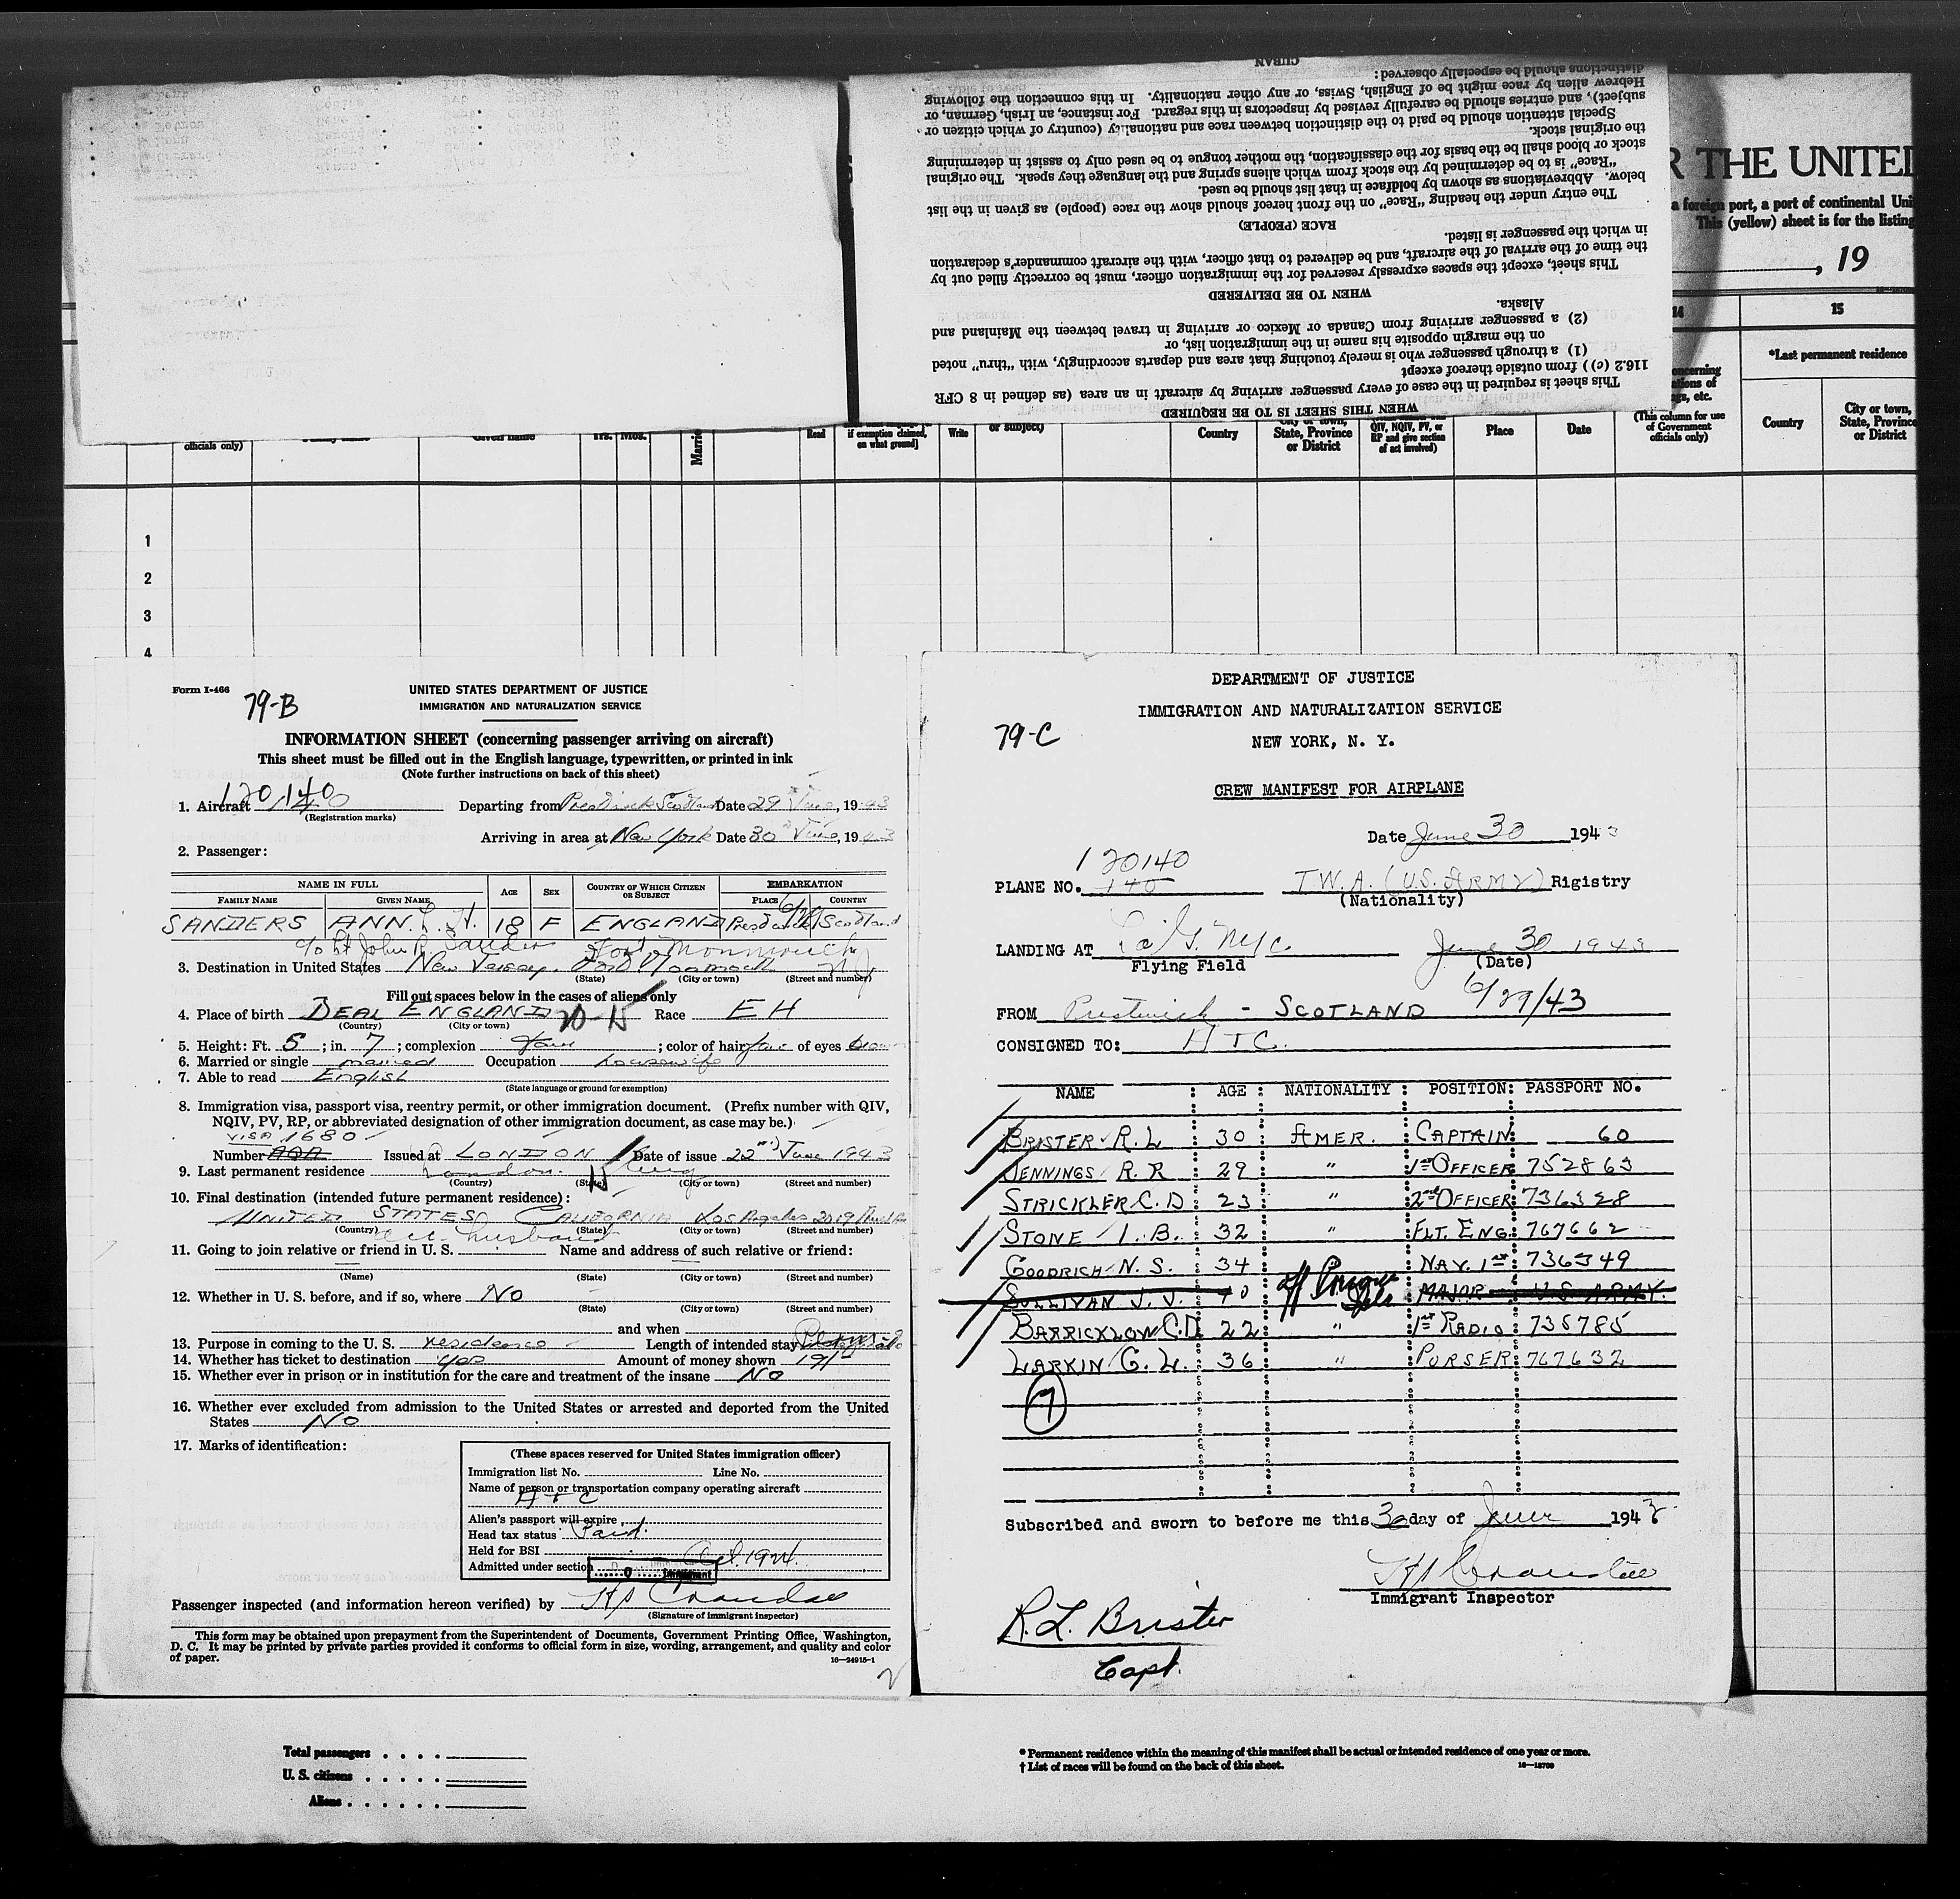 CUBAN
distinctions should be especially observed:
Hebrew alien by race might be of English, Swiss, or any other nationality. In this connection the following
subject), and entries should be carefully revised by inspectors in this regard. For instance, an Irish, German, or
Special attention should be paid to the distinction between race and nationality (country of which citizen or
the original stock.
stock or blood shall be the basis for the classification, the mother tongue to be used only to assist in determining
"Race" is to be determined by the stock from which aliens spring and the language they speak. The original
below. Abbreviations as shown by boldface in that list should be used.
The entry under the heading "Race" on the front hereof should show the race (people) as given in the list
RACE (PEOPLE)
in which the passenger is listed.
the time of the arrival of the aircraft, and be delivered to that officer, with the aircraft commander's declaration
This sheet, except the spaces expressly reserved for the immigration officer, must be correctly filled out by
WHEN TO BE DELIVERED
Alaska.
(2) a passenger arriving from Canada or Mexico or arriving in travel between the Mainland and
on the margin opposite his name in the immigration list, or
(1) a through passenger who is merely touching that area and departs accordingly, with "thru" noted
116.2 (c)) from outside thereof except
This sheet is required in the case of every passenger arriving by aircraft in an area (as defined in 8 CFR
WHEN THIS SHEET IS TO BE REQUIRED
R THE UNITED
a foreign port, a port of continental Uni
This (yellow) sheet is for the listing
, 19
14 15
*Last permanent residence
(This column for use of Government officials only)
Country
City or town, State, Province or District
officials only)
Given name
Yrs. Mos.
Read
if exemption claimed, on what ground]
Write
or subject)
Country
City or town, State, Province or District
QIV, NQIV, PV, or RP and give section of act involved)
Place
Date
1
2
3
4
Form I-466
79-B
UNITED STATES DEPARTMENT OF JUSTICE
IMMIGRATION AND NATURALIZATION SERVICE
INFORMATION SHEET (concerning passenger arriving on aircraft)
This sheet must be filled out in the English language, typewritten, or printed in ink
(Note further instructions on back of this sheet)
1. Aircraft 120140 Departing from Prestwick Scotland Date 29 June, 1943
(Registration marks)
Arriving in area at New York Date 30 June, 1943
2. Passenger:
NAME IN FULL AGE SEX COUNTRY OF WHICH CITIZEN OR SUBJECT EMBARKATION
FAMILY NAME GIVEN NAME PLACE COUNTRY
SANDERS ANN. L. H. 18 F ENGLAND Prestwick Scotland
c/o Lt John R Sanders Fort Monmouth NJ
3. Destination in United States New Jersey. Fort Monmouth
(State) (City or town) (Street and number)
Fill out spaces below in the cases of aliens only
4. Place of birth DEAL ENGLAND Race EH
(Country) (City or town)
5. Height: Ft. 5; in. 7; complexion fair; color of hair fair of eyes brown
6. Married or single married Occupation housewife
7. Able to read English
(State language or ground for exemption)
8. Immigration visa, passport visa, reentry permit, or other immigration document. (Prefix number with QIV,
NQIV, PV, RP, or abbreviated designation of other immigration document, as case may be.)
VISA 1680
Number Issued at LONDON Date of issue 22nd June 1943
9. Last permanent residence London. Eng
(Country) (State) (City or town) (Street and number)
10. Final destination (intended future permanent residence):
UNITED STATES CALIFORNIA Los Angeles 2019
(Country) (State) (City or town) (Street and number)
husband
11. Going to join relative or friend in U. S. Name and address of such relative or friend:
(Name) (State) (City or town) (Street and number)
12. Whether in U. S. before, and if so, where No
(State) (City or town) (Street and number)
and when
13. Purpose in coming to the U. S. residence Length of intended stay
14. Whether has ticket to destination yes Amount of money shown 191
15. Whether ever in prison or in institution for the care and treatment of the insane No
16. Whether ever excluded from admission to the United States or arrested and deported from the United
States No
17. Marks of identification:
(These spaces reserved for United States immigration officer)
Immigration list No. Line No.
Name of person or transportation company operating aircraft
ATC
Alien's passport will expire
Head tax status Paid.
Held for BSI
Admitted under section
Passenger inspected (and information hereon verified) by
(Signature of immigrant inspector)
This form may be obtained upon prepayment from the Superintendent of Documents, Government Printing Office, Washington,
D. C. It may be printed by private parties provided it conforms to official form in size, wording, arrangement, and quality and color
of paper. 16—24915-1
DEPARTMENT OF JUSTICE
IMMIGRATION AND NATURALIZATION SERVICE
NEW YORK, N. Y.
79-C
CREW MANIFEST FOR AIRPLANE
Date June 30 1943
120140
PLANE NO. 140 T.W.A. (U.S. ARMY) Rigistry
(Nationality)
LANDING AT La G. NYC. June 30 1943
Flying Field (Date)
FROM Prestwick - SCOTLAND 6/29/43
CONSIGNED TO: ATC.
NAME AGE NATIONALITY POSITION PASSPORT NO.
BRISTER R. L 30 AMER. CAPTAIN 60
JENNINGS R. R 29 " 1st OFFICER 752863
STRICKLER C. D 23 " 2nd OFFICER 736328
STONE I. B. 32 " FLT. ENG. 767662
GOODRICH N. S. 34 NAV. 1st 736349
SULLIVAN J. J. 40 MAJOR U.S. ARMY.
BARRICKLOW C.D. 22 " 1st RADIO 735785
LARKIN G. L. 36 " PURSER 767632
7
Subscribed and sworn to before me this 30 day of June 1943
Immigrant Inspector
R. L. Brister
Capt.
Total passengers
U. S. citizens
Aliens
* Permanent residence within the meaning of this manifest shall be actual or intended residence of one year or more.
† List of races will be found on the back of this sheet. 16—18709